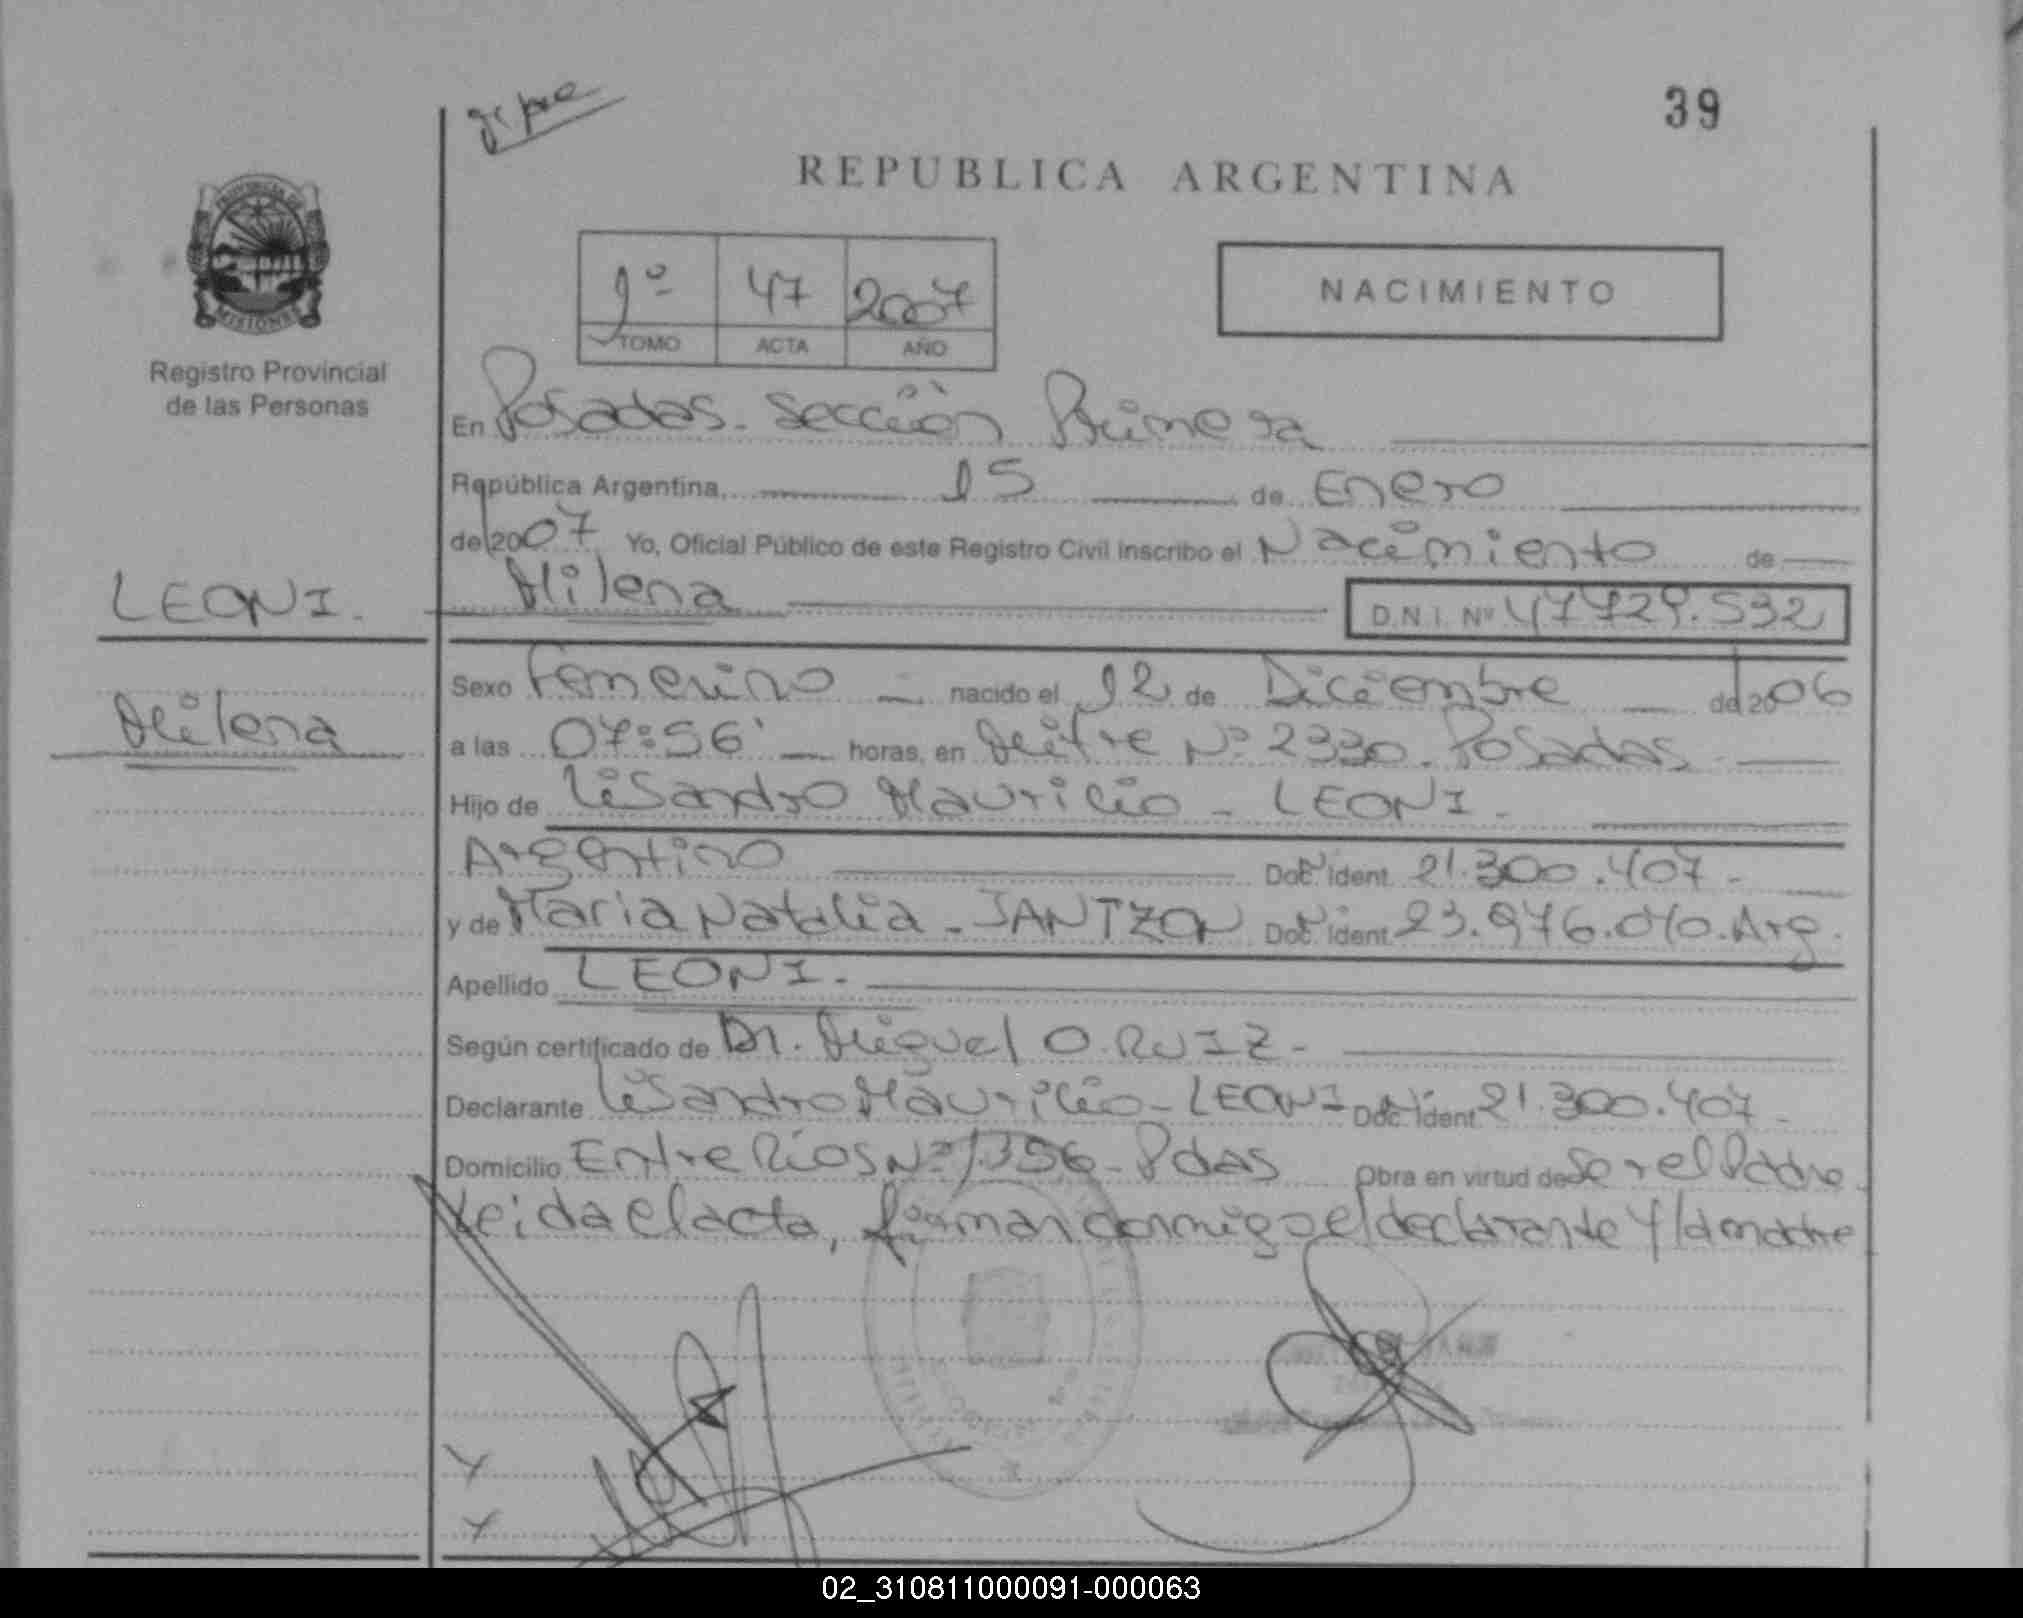 39
REPUBLICA ARGENTINA
PROVINCIA DE
MISIONES
Registro Provincial
de las Personas
1º 47 2007
TOMO ACTA AÑO
NACIMIENTO
En Posadas. Sección Primera
República Argentina, 15 de Enero
de 2007 Yo, Oficial Público de este Registro Civil inscribo el Nacimiento de
LEONI. Milena D.N.I. Nº 47729.532
Milena
Sexo Femenino nacido el 12 de Diciembre de 2006
a las 07:56' horas, en Mitre Nº 2330. Posadas
Hijo de Lisandro Mauricio - LEONI.
Argentino Doc. Ident. 21.300.407-
y de Maria Natalia - JANTZON Doc. Ident. 23.976.040. Arg.
Apellido LEONI.
Según certificado de Dr. Miguel O. RUIZ-
Declarante Lisandro Mauricio - LEONI Doc. Ident. 21.300.407-
Domicilio Entre Ríos Nº 1356- Pdas Obra en virtud de Ser el Padre
Leida el acta, firman conmigo el declarante y la madre
02_310811000091-000063